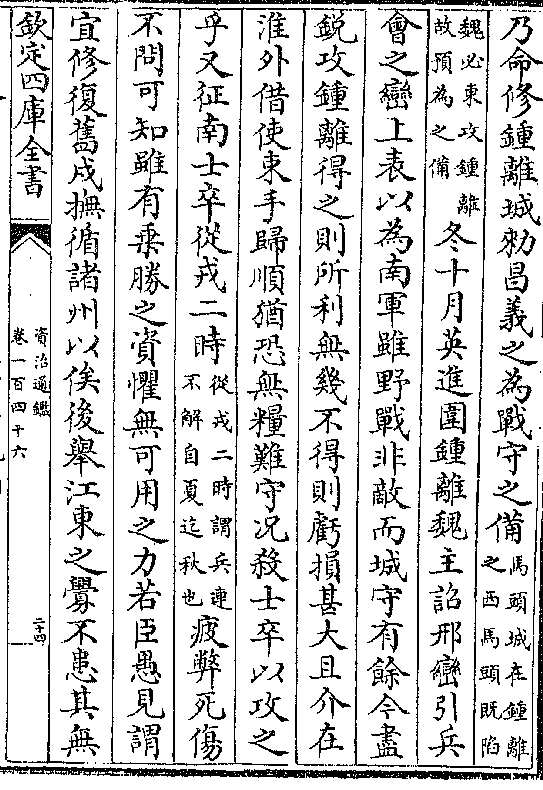 乃命修鍾離城勑昌義之為戰守之備馬頭城在鍾離之西馬頭既陷
魏必東攻鍾離故預為之備冬十月英進圍鍾離魏主詔邢巒引兵
會之巒上表以為南軍雖野戰非敵而城守有餘今盡
鋭攻鍾離得之則所利無幾不得則虧損甚大且介在
淮外借使束手歸順猶恐無糧難守况殺士卒以攻之
乎又征南士卒從戎二時從戎二時謂兵連不解自夏迄秋也疲弊死傷
不問可知雖有乗勝之資懼無可用之力若臣愚見謂
宜修復舊戍撫循諸州以俟後舉江東之釁不患其無
欽定四庫全書
資治通鑑
卷一百四十六
二十四